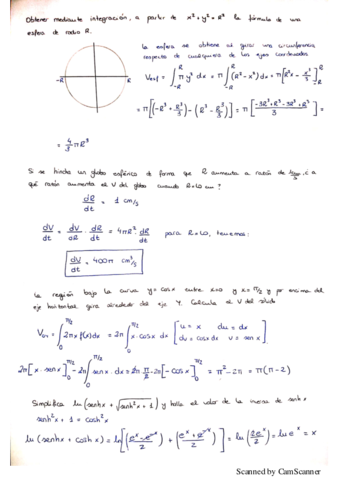 Obtener mediante integración, a partir de x² + y² = R² la fórmula de una
esfera de radio R.
-R R
La esfera se obtiene al girar una circunferencia
respecto de cualquiera de los ejes coordenados
V = ∫ π y² dx = π ∫ (R² - x²) dx = π [R²x - x³/3]
= 4/3 π R³
Si se hincha un globo esférico de forma que R aumenta a razón de
qué razón aumenta el V del globo cuando R = 10 cm?
dR/dt = 1 cm/s
dV/dt = dV/dR · dR/dt = 4πR² · dR/dt para R = 10, tenemos:
dV/dt = 400π cm³/s
La región bajo la curva y = cos x entre x = 0 y x = π/2 y por encima del
eje horizontal gira alrededor del eje Y. Calcula el V del sólido
= ∫ 2πx f(x) dx = 2π ∫ x · cos x dx [u = x du = dx
dv = cos x dx v = sen x]
2π [x · sen x] - 2π ∫ sen x · dx = 2π π/2 - 2π [-cos x] = π² - 2π = π(π-2)
Simplifica ln(senh x + √(senh² x + 1)) y halla el valor de la inversa de senh x
senh² x + 1 = cosh² x
ln(senh x + cosh x) = ln[(eˣ - e⁻ˣ)/2 + (eˣ + e⁻ˣ)/2] = ln(2eˣ/2) = ln eˣ = x
Scanned by CamScanner